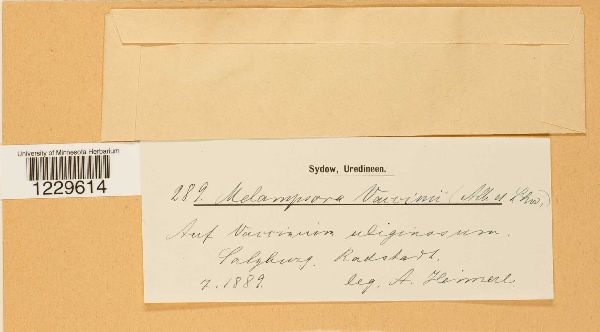 University of Minnesota Herbarium
1229614
Sydow, Uredineen.
289. Melampsora Vaccinii (Alb. et Schw.)
Auf Vaccinium uliginosum.
Salzburg. Radstadt.
7. 1889. leg. A. Heimerl